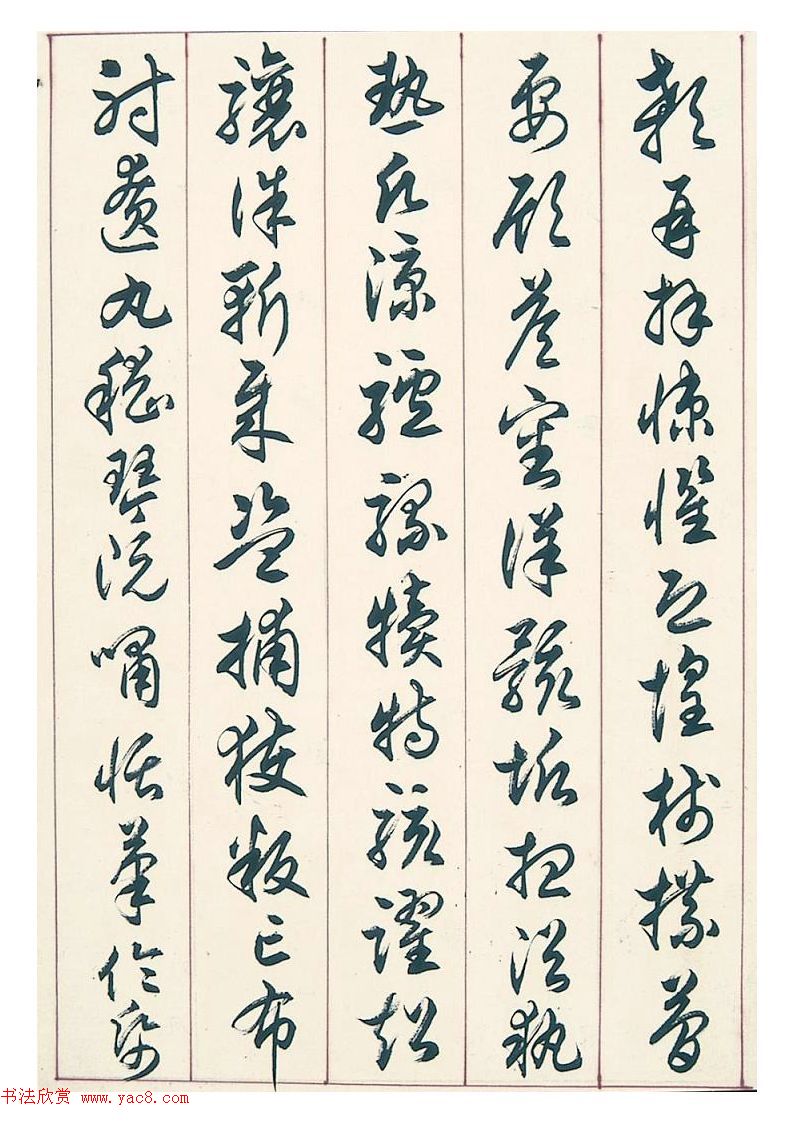 顙再拜悚懼恐惶牋牒簡
要顧答審詳骸垢想浴執
熱願涼驢騾犢特駭躍超
驤誅斬賊盜捕獲叛亡布
射遼丸嵇琴阮嘯恬筆倫紙
书法欣赏 www.yac8.com